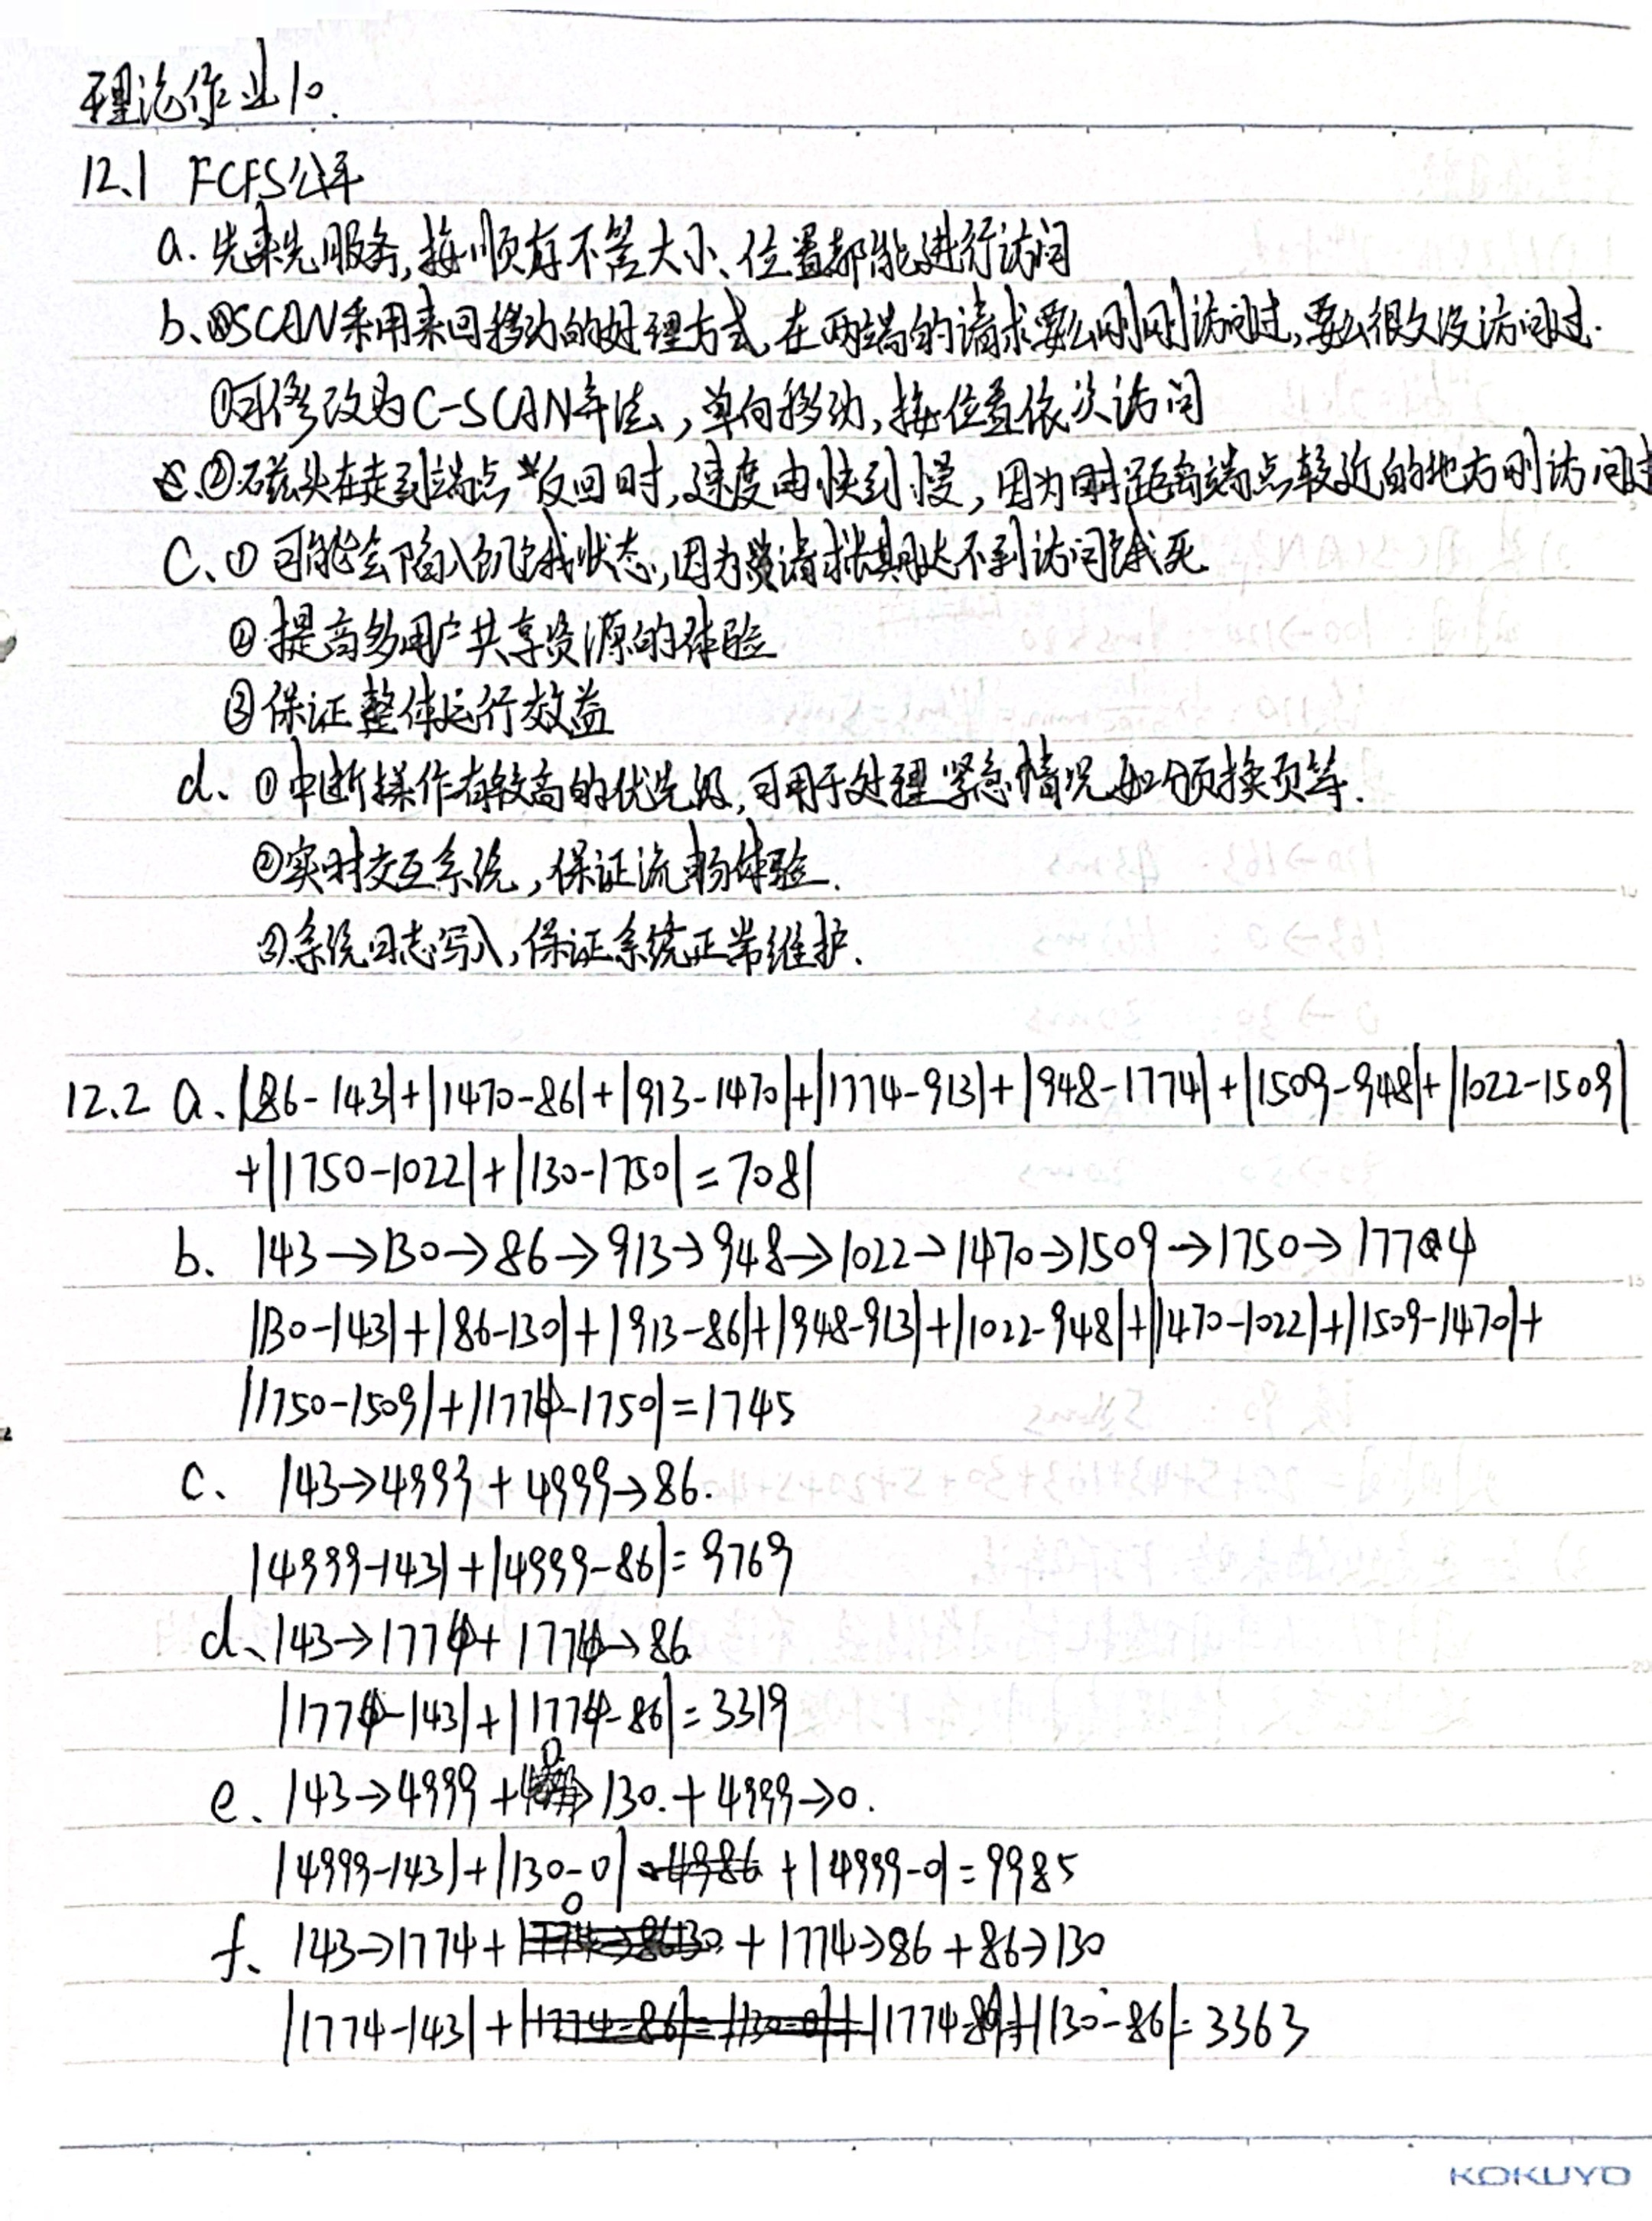 理论作业10.
12.1 FCFS公平
a. 先来先服务,按顺序不管大小、位置都能进行访问
b、SCAN采用来回移动的处理方式,在两端的请求要么刚刚访问过,要么很久没访问过.
①可修改为C-SCAN算法,单向移动,按位置依次访问
②磁头在走到端点返回时,速度由快到慢,因为距离端点较近的地方刚访问过
C、①可能会陷入饥饿状态,因为请求长期达不到访问饿死
②提高多用户共享资源的体验
③保证整体运行效益
d、①中断操作有较高的优先级,可用于处理紧急情况如分页换页等.
②实时交互系统,保证流畅体验.
③系统日志写入,保证系统正常维护.
12.2 a. |86-143|+|1470-86|+|913-1470|+|1774-913|+|948-1774|+|1509-948|+|1022-1509|
+|1750-1022|+|130-1750|=7081
b、 143→130→86→913→948→1022→1470→1509→1750→1774
|130-143|+|86-130|+|913-86|+|948-913|+|1022-948|+|1470-1022|+|1509-1470|+
|1750-1509|+|1774-1750|=1745
c、 143→4999+4999→86.
|4999-143|+|4999-86|=9769
d、143→1774+1774→86
|1774-143|+|1774-86|=3319
e、143→4999+0→130.+4999→0.
|4999-143|+|130-0|+|4999-0|=9985
f、143→1774+1774→86+86→130
|1774-143|+|1774-86|+|130-86|=3363
KOKUYO